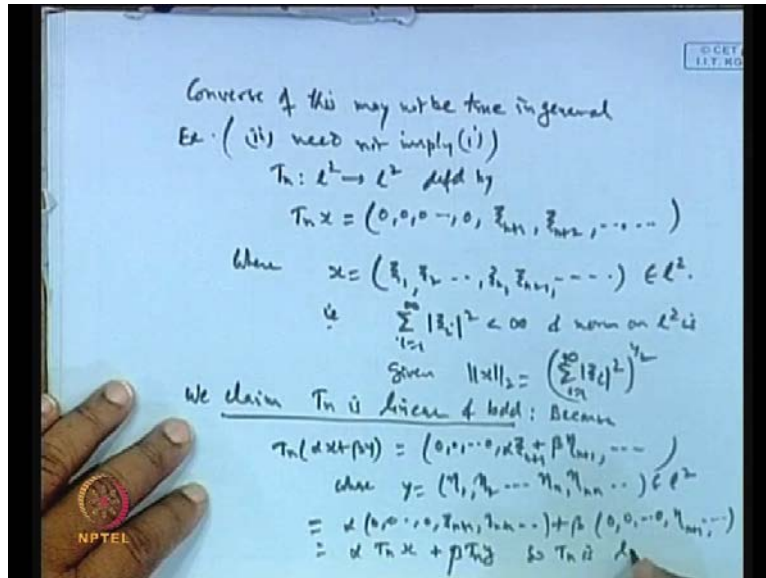 © CET
I.I.T. KG
Converse of this may not be true in general
Ex. ( (ii) need not imply (i) )
Tn : l² → l² defd by
Tn x = (0, 0, 0 ..., 0, ξn+1, ξn+2, ......)
Where x = (ξ1, ξ2 ..., ξn, ξn+1, ----) ∈ l².
ie ∑_{i=1}^{∞} |ξi|² < ∞ & norm on l² is
Given ||x||₂ = (∑_{i=1}^{∞} |ξi|²)^{1/2}
We claim Tn is linear & bdd : Because
Tn(αx+βy) = (0, 0, ... 0, αξn+1 + βηn+1, ---)
where y = (η1, η2 ---- ηn, ηn+1 ..) ∈ l²
= α (0, 0 ..., 0, ξn+1, ξn+2 ..) + β (0, 0, ... 0, ηn+1, ...)
= α Tn x + β Tn y so Tn is
NPTEL